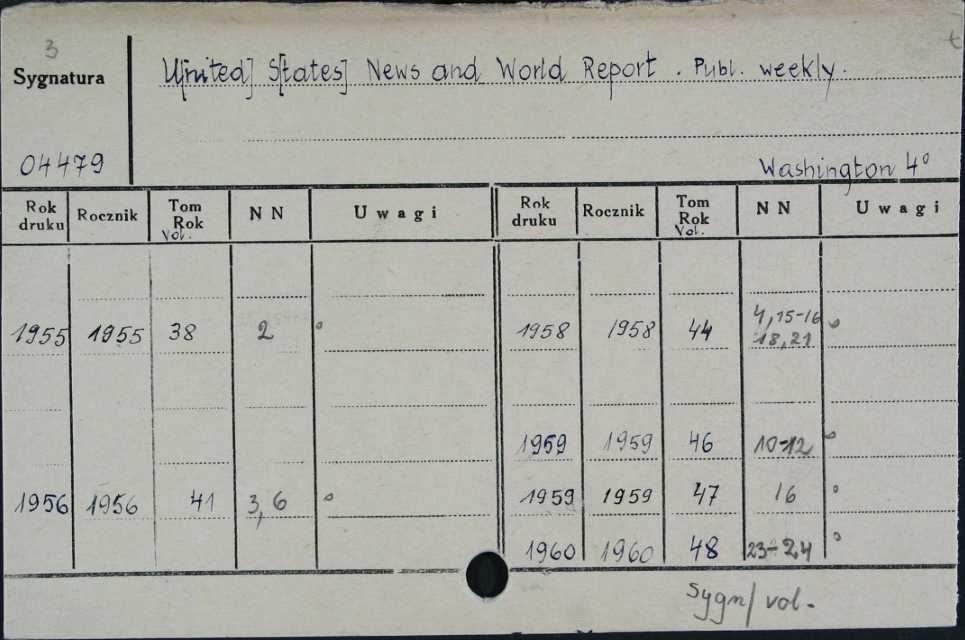 3
Sygnatura
U[nited] S[tates] News and World Report. Publ. weekly.
04479
Washington 4°
Rok druku Rocznik Tom Rok Vol. N N Uwagi Rok druku Rocznik Tom Rok Vol. N N Uwagi
1955 1955 38 2 1958 1958 44 4, 15-16 18, 21
1959 1959 46 10-12
1956 1956 41 3, 6 1959 1959 47 16
1960 1960 48 23-24
Sygn/vol.